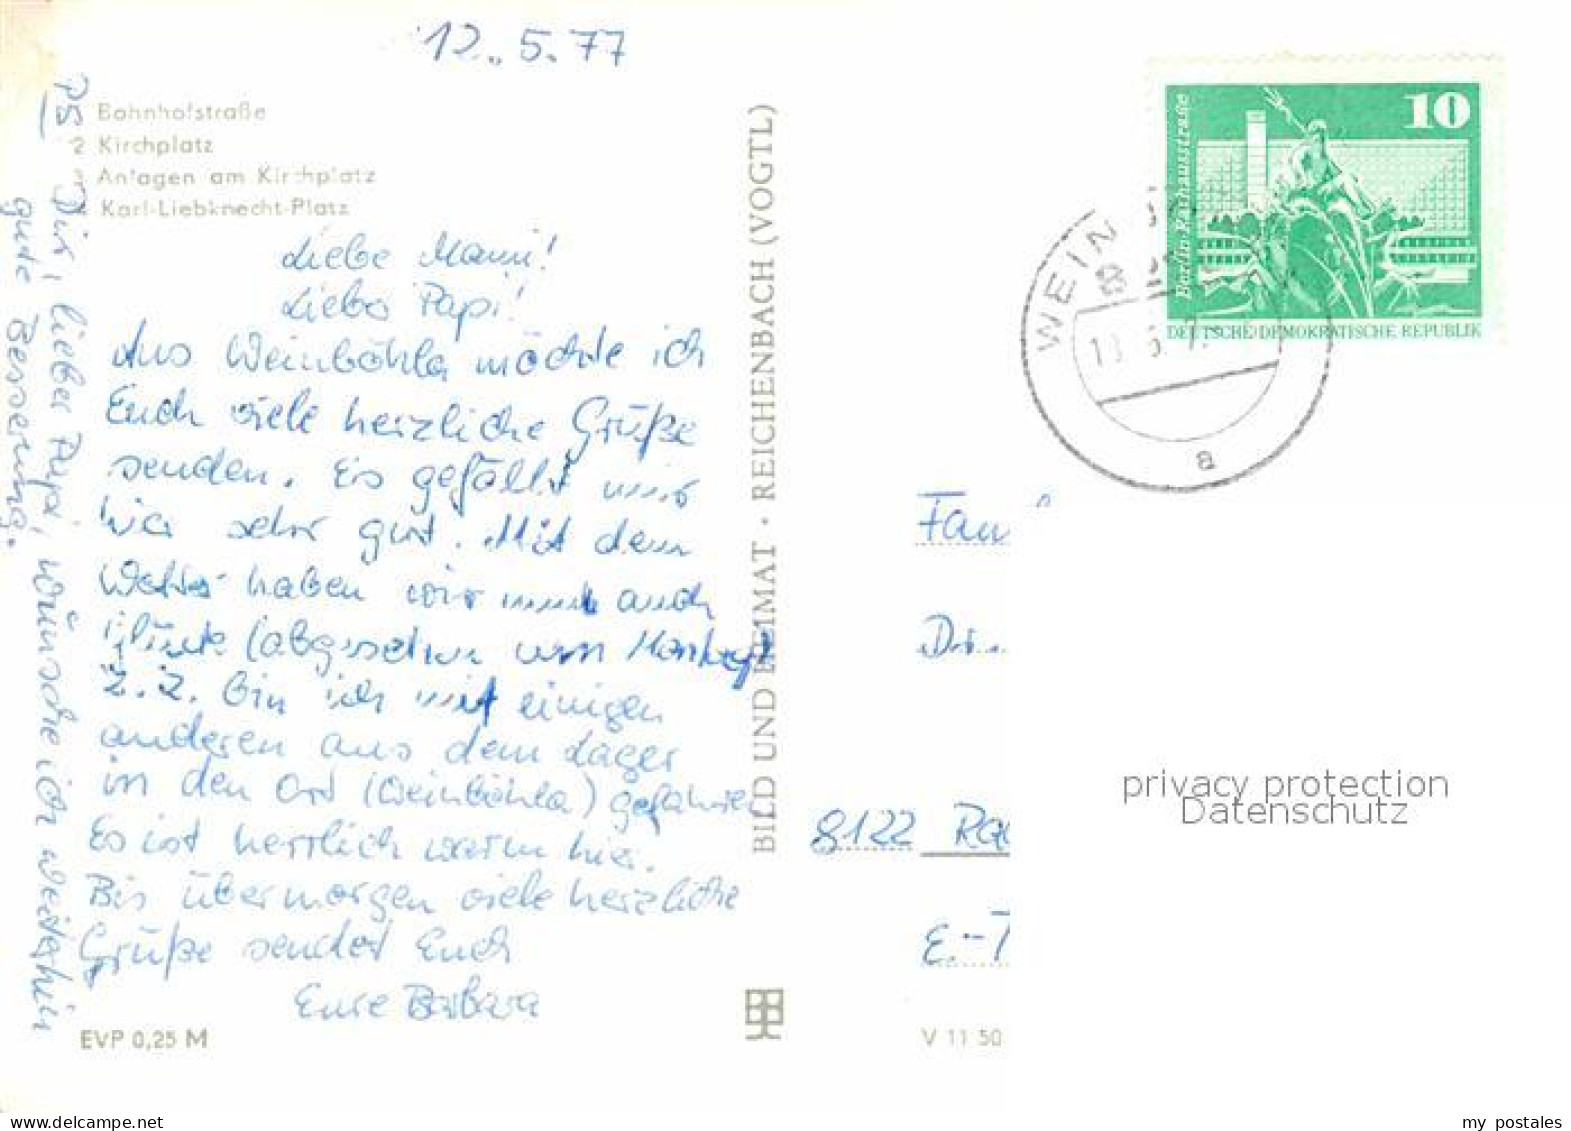 12. 5. 77
PS
Bahnhofstraße
2 Kirchplatz
3 Anlagen am Kirchplatz
4 Karl-Liebknecht-Platz
Liebe Mami!
Lieber Papi!
Aus Weinböhla möchte ich
Euch viele herzliche Grüße
senden. Es gefällt mir
hier sehr gut. Mit dem
Wetter haben wir auch
(abgesehen vom
z.Z. bin ich mit einigen
anderen aus dem Lager
in den Ort (Weinböhla) gefahren
Es ist herrlich warm hier.
Bis übermorgen viele herzliche
Grüße sendet Euch
Eure Barbara
Dir, lieber Papi, wünsche ich weiterhin
gute Besserung.
EVP 0,25 M
BILD UND HEIMAT · REICHENBACH (VOGTL)
V 11 50
10
Berlin Rathausstraße
DEUTSCHE DEMOKRATISCHE REPUBLIK
WEIN
a
Fam
8122
E.-T
privacy protection
Datenschutz
my postales